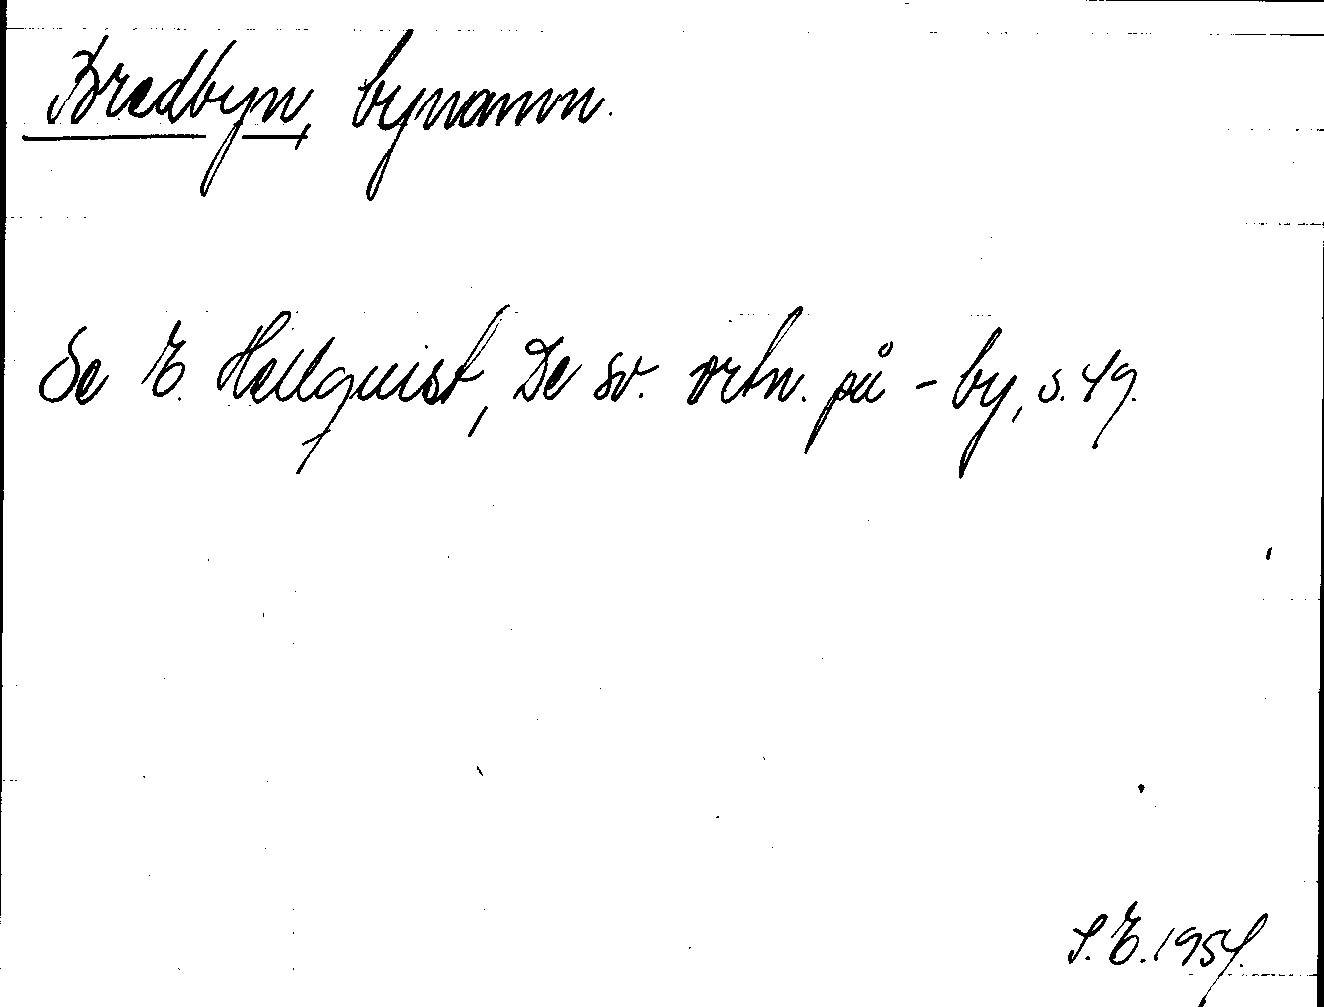 Bredbyn, bynamn.
Se E. Hellquist, De sv. ortn. på -by, s. 49.
S.E. 1954.